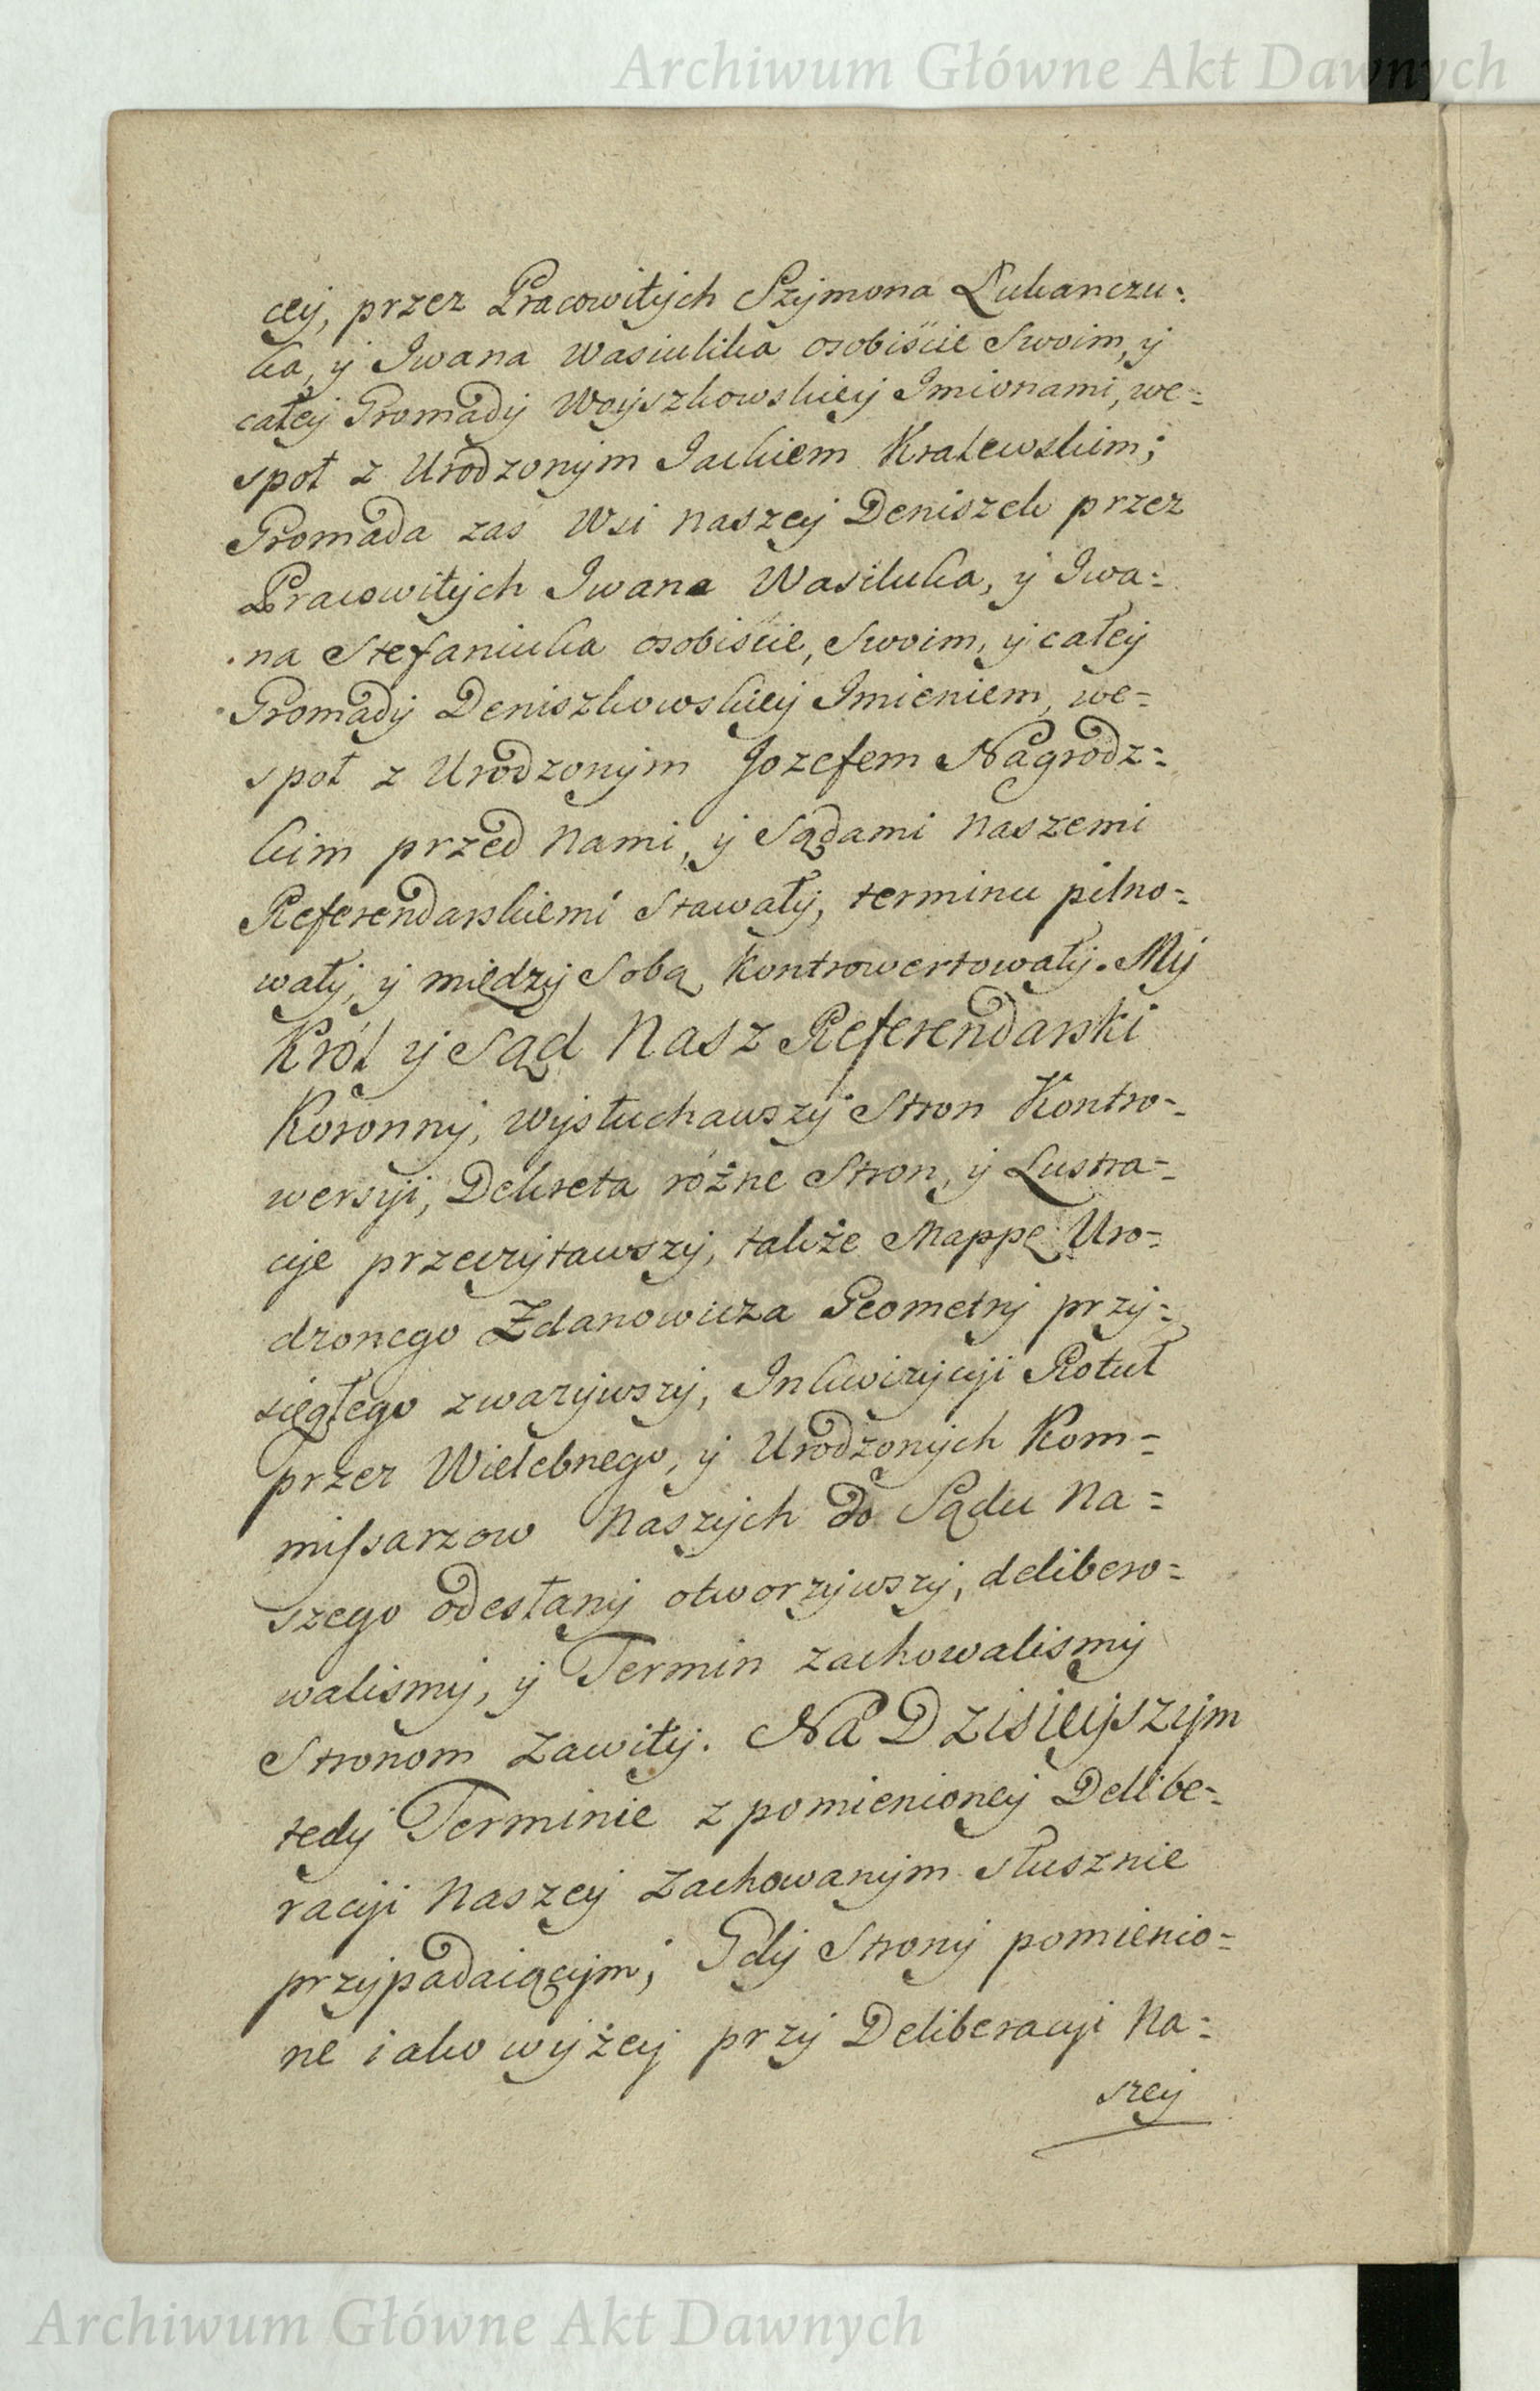 Archiwum Główne Akt Dawnych
cey, przez Pracowitych Szymona Łukanczu=
ka, y Iwana Wasiulika osobiście Swoim, y
całey Gromady Woyszkowskiey Imionami, we=
społ z Urodzonym Jackiem Kralewskim;
Gromada zaś Wsi naszey Deniszek przez
Pracowitych Iwana Wasiluka, y Iwa=
na Stefaniuka osobiście, Swoim, y całey
Gromady Deniszkowskiey Imieniem, we=
społ z Urodzonym Jozefem Nagrodz=
kim przed Nami, y Sądami naszemi
Referendarskiemi Stawały, terminu pilno=
wały, y między Sobą kontrowertowały. My
Król y Sąd Nasz Referendarski
Koronny, wysłuchawszy Stron Kontro=
wersyi, Dekreta różne Stron, y Lustra=
cye przeczytawszy, także Mappę Uro=
dzonego Zdanowicza Geometry przy=
sięgłego zwarzywszy, Inkwizycyi Rotuł
przez Wielebnego, y Urodzonych Kom=
missarzow Naszych do Sądu Na=
szego odesłany otworzywszy, delibero=
walismy, y Termin zachowalismy
Stronom zawity. Na Dzisieyszym
tedy Terminie z pomienioney Delibe=
racyi Naszey Zachowanym słusznie
przypadaiącym; Gdy Strony pomienio=
ne iako wyżey przy Deliberacyi Na=
szey
Archiwum Główne Akt Dawnych